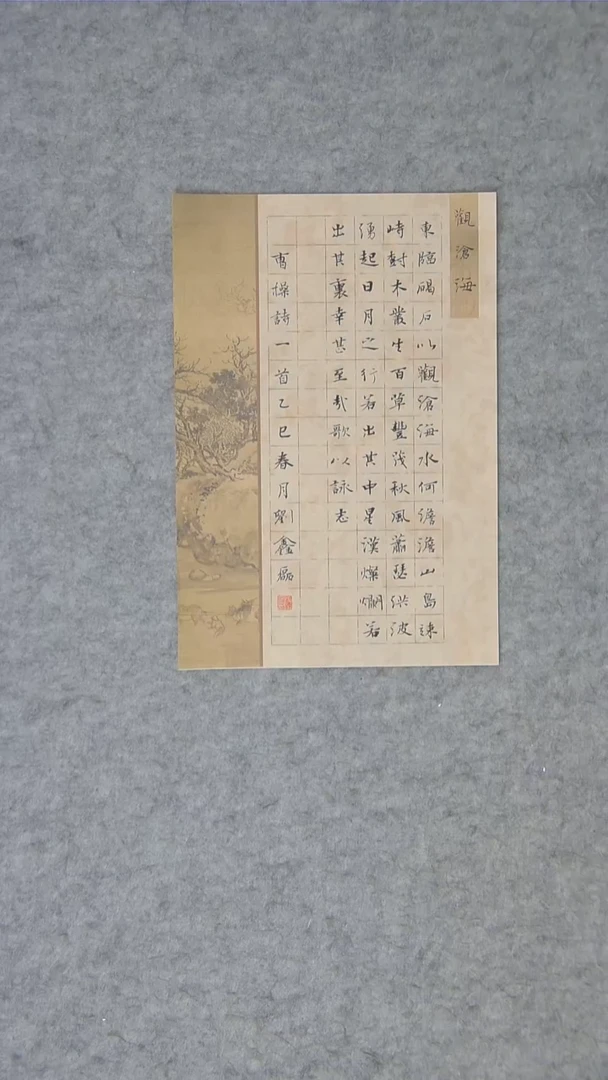 觀滄海
東臨碣石以觀滄海水何澹澹山島竦
峙樹木叢生百草豐茂秋風蕭瑟洪波
湧起日月之行若出其中星漢燦爛若
出其裏幸甚至哉歌以詠志
曹操詩一首乙巳春月劉鑫磊